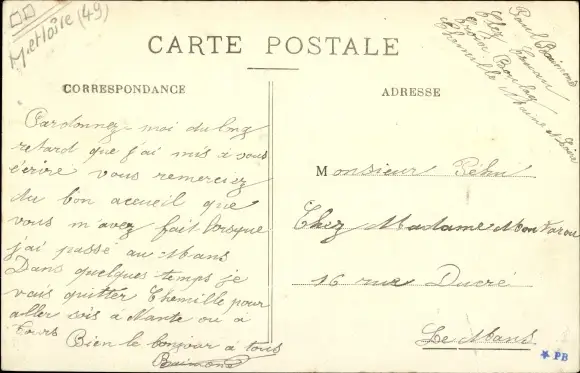 M. et Loire (49)
Paul Raimond
Chez
Chemillé Maine et Loire
CARTE POSTALE
CORRESPONDANCE
Pardonnez-moi du long
retard que j'ai mis à vous
écrire vous remerciez
du bon accueil que
vous m'avez fait lorsque
j'ai passé au Mans
Dans quelques temps je
vais quitter Chemillé pour
aller sois à Nante ou à
Tours
Bien le bonjour à tous
Raimond
ADRESSE
Monsieur Péhu
Chez Madame
16 rue Ducré
Le Mans
* PB